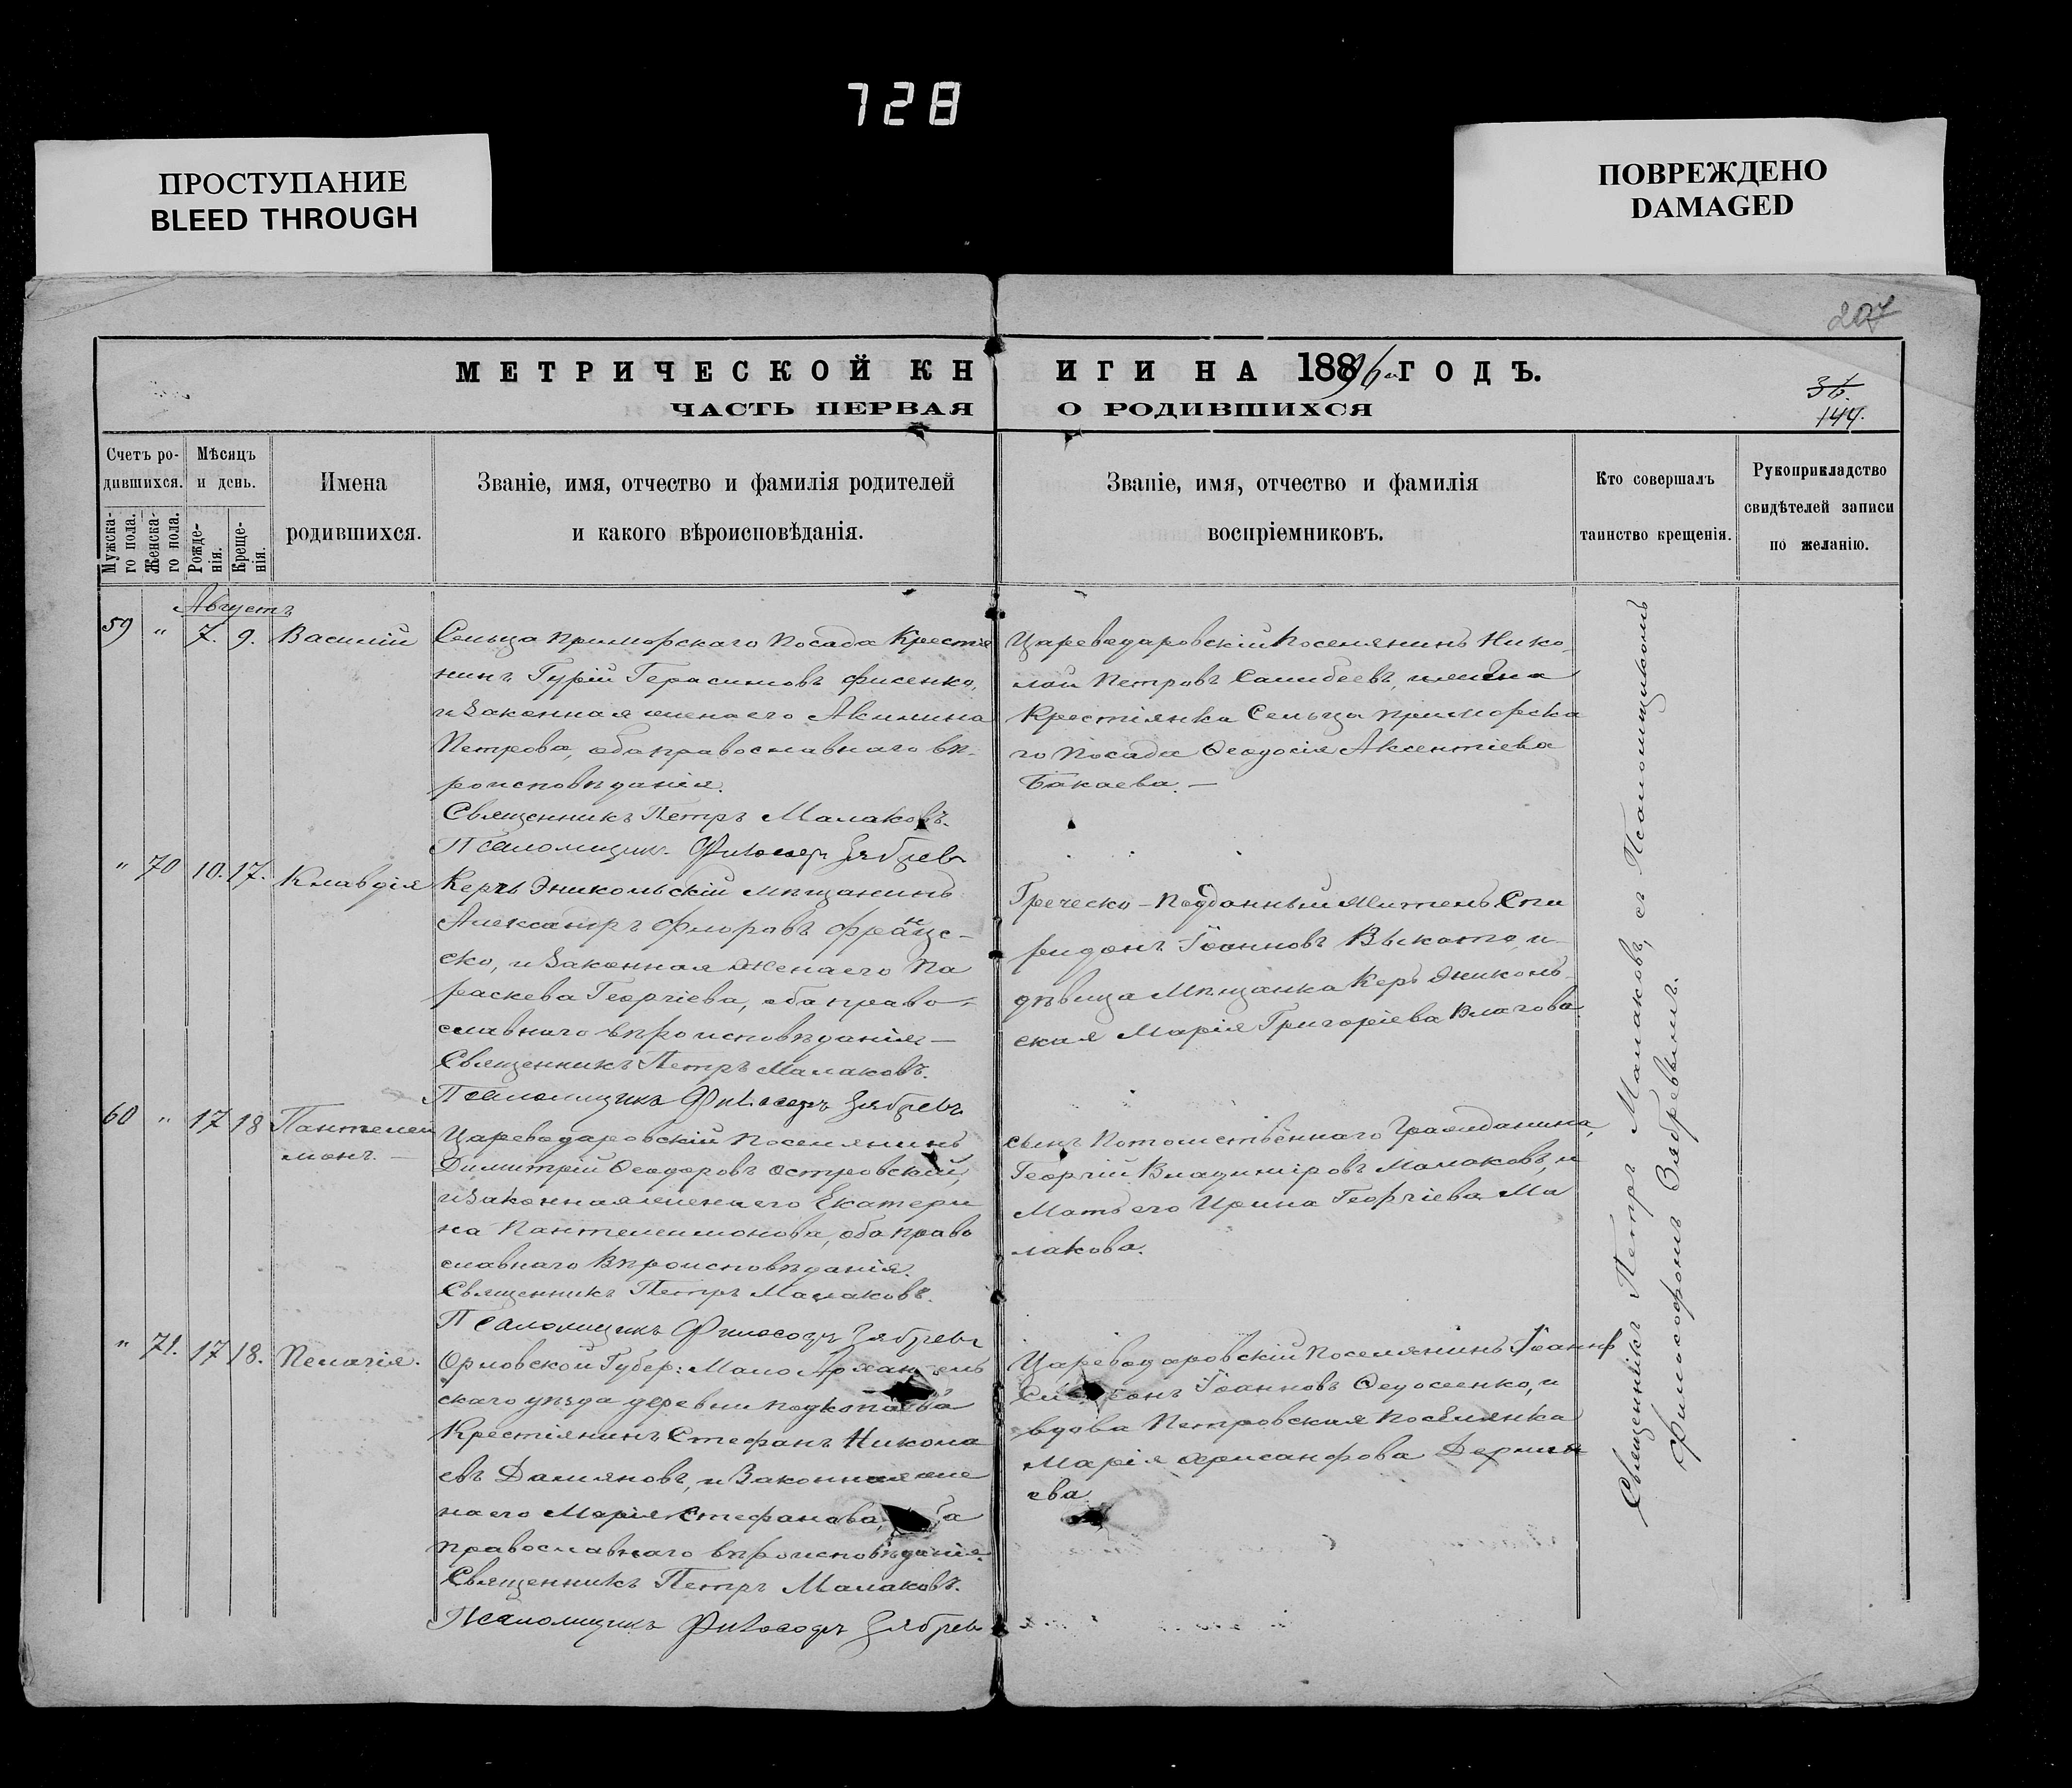 728
ПРОСТУПАНИЕ
BLEED THROUGH
ПОВРЕЖДЕНО
DAMAGED
207
МЕТРИЧЕСКОЙ КНИГИ НА 1896 ГОДЪ.
ЧАСТЬ ПЕРВАЯ О РОДИВШИХСЯ
36.
144.
Счетъ родившихся.
Мужска-го пола.
Женска-го пола.
Мѣсяцъ и день.
Рожде-нія.
Креще-нія.
Имена родившихся.
Званіе, имя, отчество и фамилія родителей
и какого вѣроисповѣданія.
Званіе, имя, отчество и фамилія
воспріемниковъ.
Кто совершалъ
таинство крещенія.
Рукоприкладство
свидѣтелей записи
по желанію.
Августъ
59 " 7. 9. Василій
Сельца Приморскаго Посада Крестья
нинъ Гурій Герасимовъ Фисенко,
и Законная жена его Акилина
Петрова, оба православнаго вѣ-
роисповѣданія.
Священникъ Петръ Малаковъ.
Псаломщикъ Философъ Зябревъ
Цареводаровскій Поселянинъ Нико-
лай Петровъ
Крестіянка Сельца Приморска
го Посада Ѳеодосія Аксентіева
Бакаева. —
" 70 10. 17. Клавдія
Керчь Эникольскій мѣщанинъ
Александръ Флоровъ
ско, и Законная жена его Па
раскева Георгіева, оба право-
славнаго вѣроисповѣданія —
Священникъ Петръ Малаковъ.
Псаломщикъ Философъ Зябревъ.
Греческо-Подданный Житель Спи
ридонъ Іоанновъ и
дѣвица Мѣщанка Керчь Эниколь-
ская Марія Григоріева
60 " 17 18 Пантелей
монъ. —
Цареводаровскій Поселянинъ
Димитрій Ѳеодоровъ Островскій,
и Законная жена его Екатери
на Пантелеимонова, оба право
славнаго Вѣроисповѣданія.
Священникъ Петръ Малаковъ.
Псаломщикъ Философъ Зябревъ
сынъ Потомственнаго Гражданина,
Георгій Владиміровъ Малаковъ, и
Мать его Ирина Георгіева Ма
лакова.
" 71. 17 18. Пелагія.
Орловской Губер: Мало Архангель
скаго уѣзда деревни
Крестіянинъ Стефанъ Никола
евъ Даміяновъ, и Законная же
на его Марія Стефанова,
православнаго вѣроисповѣданія.
Священникъ Петръ Малаковъ.
Псаломщикъ Философъ Зябревъ
Цареводаровскій Поселянинъ Іоаннъ
Іоанновъ Ѳедосенко, и
вдова Петровская Поселянка
Марія Хрисанфова
ева
Священникъ Петръ Малаковъ, съ Псаломщикомъ
Философомъ Зябревымъ.